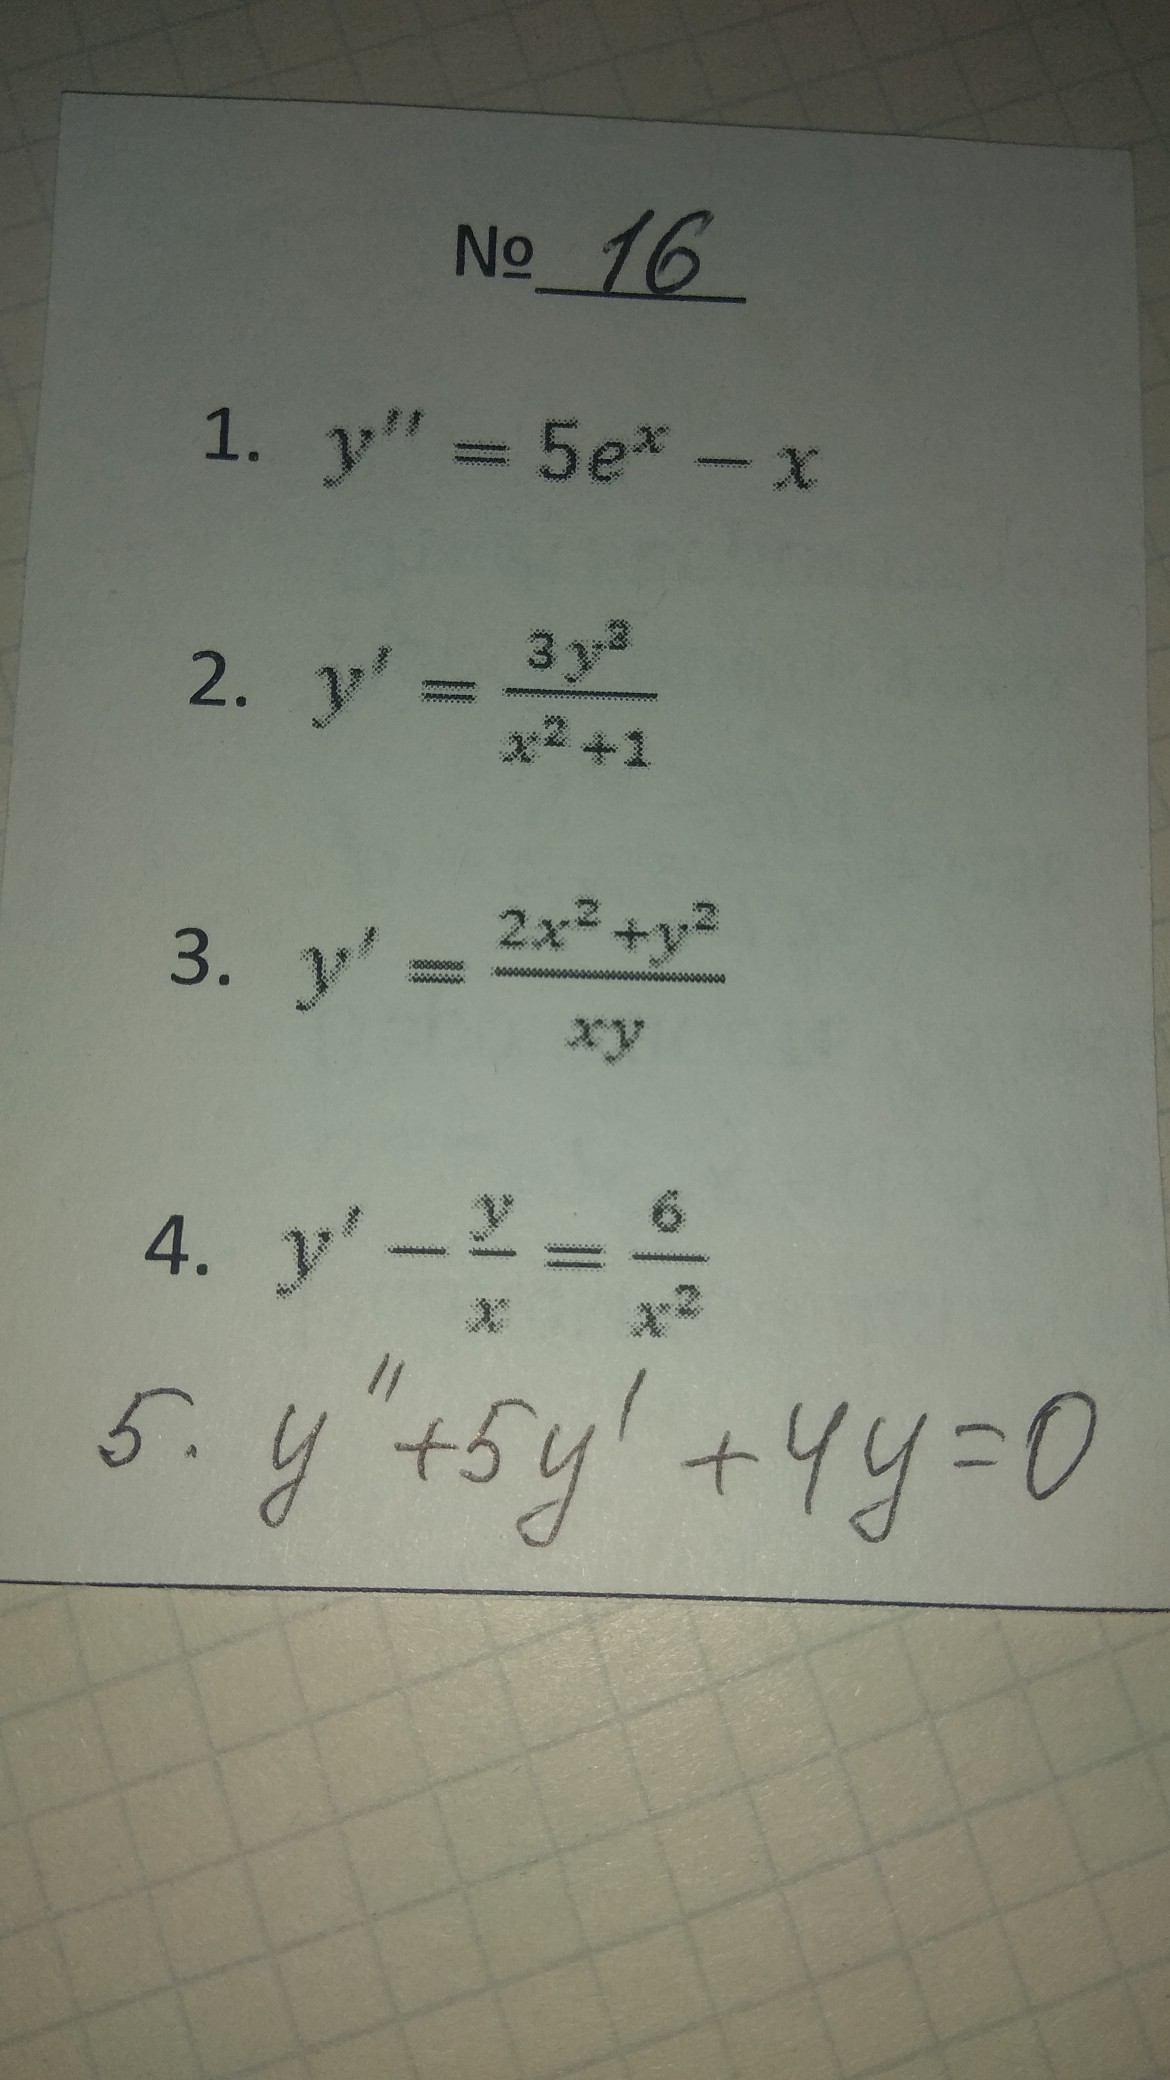 № 16
1. y'' = 5eˣ − x
2. y' = 3y² / (x² + 1)
3. y' = (2x² + y²) / (xy)
4. y' − y/x = 6/x²
5. y'' + 5y' + 4y = 0